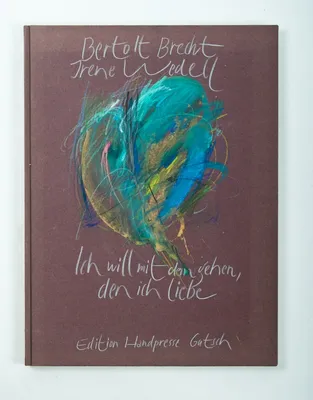 Bertolt Brecht
Irene Wedell
Ich will mit dem gehen,
den ich liebe
Edition Handpresse Gutsch